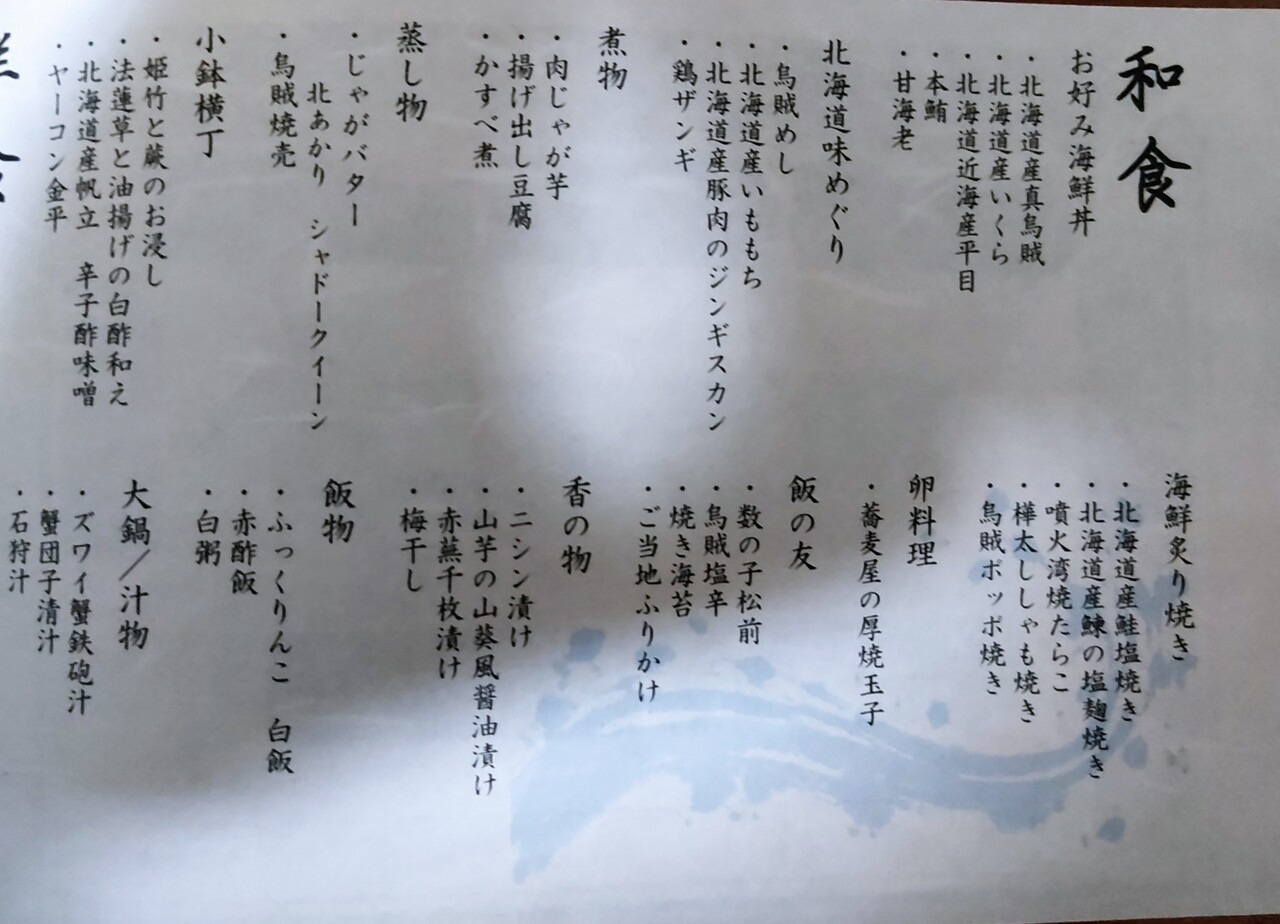 和食
お好み海鮮丼
・北海道産真烏賊
・北海道産いくら
・北海道近海産平目
・本鮪
・甘海老
北海道味めぐり
・烏賊めし
・北海道産いももち
・北海道産豚肉のジンギスカン
・鶏ザンギ
煮物
・肉じゃが芋
・揚げ出し豆腐
・かすべ煮
蒸し物
・じゃがバター
北あかり シャドークイーン
・烏賊焼売
小鉢横丁
・姫竹と蕨のお浸し
・法蓮草と油揚げの白酢和え
・北海道産帆立 辛子酢味噌
・ヤーコン金平
海鮮炙り焼き
・北海道産鮭塩焼き
・北海道産鰊の塩麹焼き
・噴火湾焼たらこ
・樺太ししゃも焼き
・烏賊ポッポ焼き
卵料理
・蕎麦屋の厚焼玉子
飯の友
・数の子松前
・烏賊塩辛
・焼き海苔
・ご当地ふりかけ
香の物
・ニシン漬け
・山芋の山葵風醤油漬け
・赤蕪千枚漬け
・梅干し
飯物
・ふっくりんこ 白飯
・赤酢飯
・白粥
大鍋／汁物
・ズワイ蟹鉄砲汁
・蟹団子清汁
・石狩汁